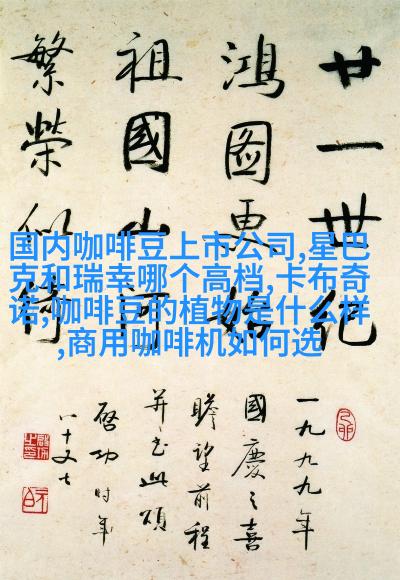 廿一世紀
鴻圖更始
祖國山河
繁榮似綺
国内咖啡豆上市公司,星巴
克和瑞幸哪个高档,卡布奇
诺,咖啡豆的植物是什么样
,商用咖啡机如何选
一九九九年
國慶之喜
瞻望前程
并书此頌
啓功时年
八十又七